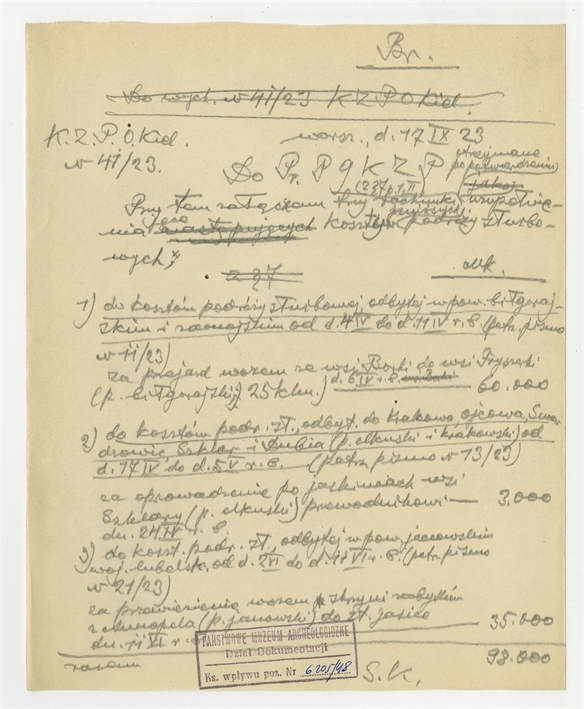 Br.
Do wych. n 41/23 K Z P O Kid.
K.Z.P.O.Kid.
n 41/23.
warsz., d. 17 IX 23
Do Pr. P g K Z P
otrzymane
po potwierdzeniu
(jakoś)
(237 p. 1, II)
Przy tem załączam trzy rachunki uzupełnia-
jące
nia następujących kosztów podróży służbo-
wych:
a 27
Mk.
1) do kosztów podróży służbowej, odbytej w pow. biłgoraj-
skim i zamojskim od d. 4 IV do d. 11 IV r. b. (patrz pismo
n 11/23)
za przejazd wozem ze wsi Borki do wsi
(p. biłgorajski, 25 klm.) d. 6 IV r. b. 60.000
2) do kosztów podr. sł., odbyt. do Krakowa, Ojcowa,
Szklar i Dubia (p. olkuski i krakowski) od
d. 17 IV do d. 5 V r. b. (patrz pismo n 13/23)
za oprowadzenie po jaskiniach wsi
Szklary (p. olkuski) przewodnikowi — 3.000
dn. 24 IV r. b.
3) do koszt. podr. sł., odbytej w pow. janowskim
woj. lubelsk. od d. 2 VI do d. 11 VI r. b. (patrz pismo
n 21/23)
za przewiezienie wozem skrzyni z zabytkiem
z (p. janowski) do st.
dn. 11 VI r. b. 35.000
razem 98.000
S.K.
PAŃSTWOWE MUZEUM ARCHEOLOGICZNE
Dział Dokumentacji
Ks. wpływu poz. Nr 6205/48